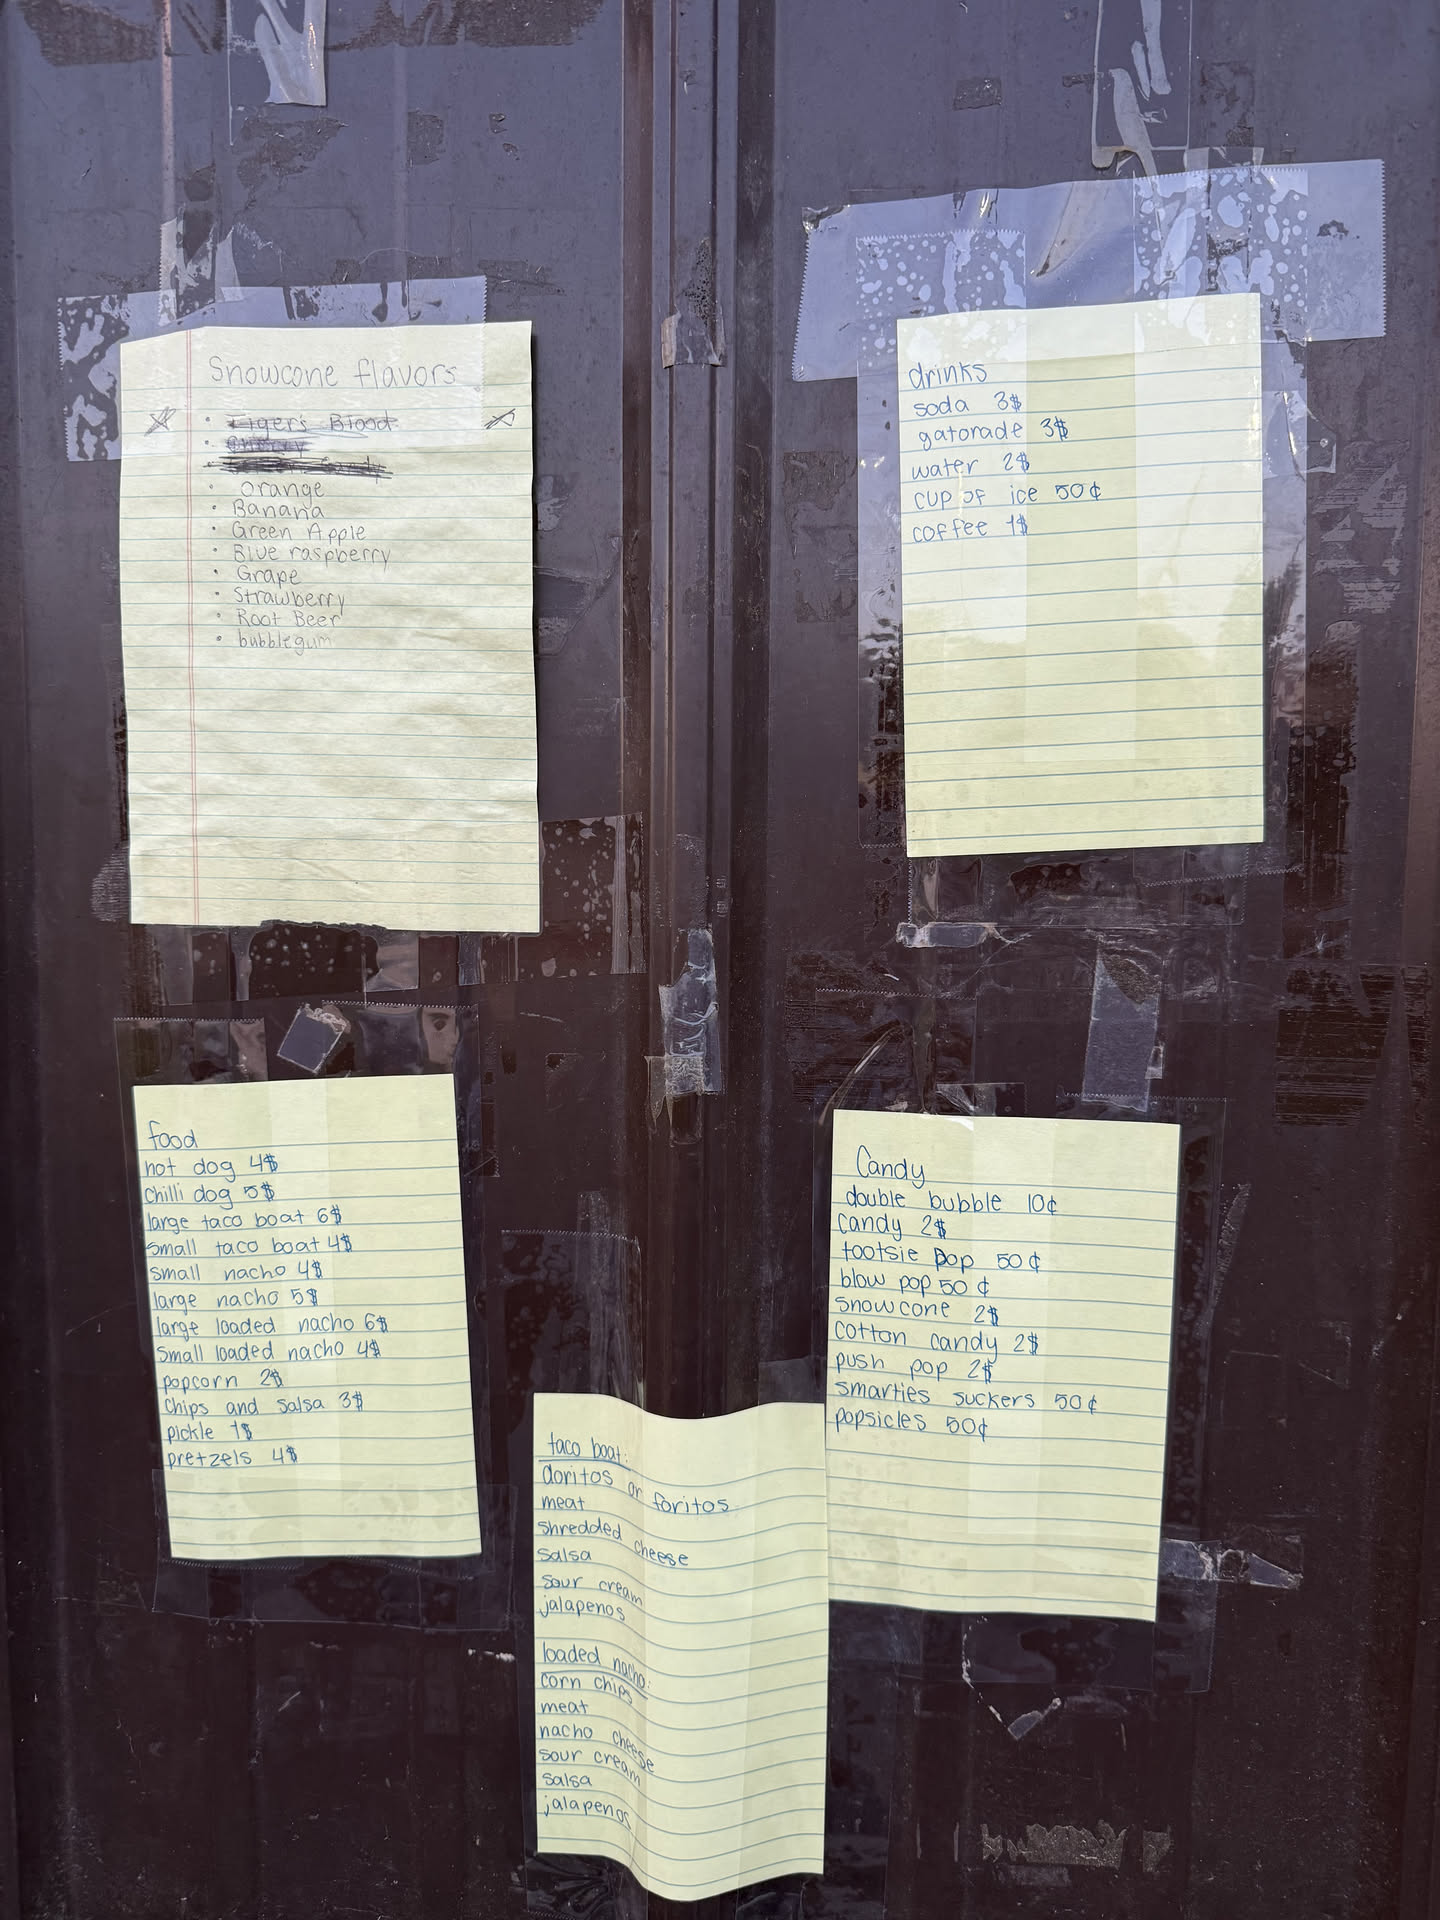 Snowcone flavors
• Tiger's Blood
• Orange
• Banana
• Green Apple
• Blue raspberry
• Grape
• Strawberry
• Root Beer
• bubblegum
drinks
soda 3$
gatorade 3$
water 2$
cup of ice 50¢
coffee 1$
food
hot dog 4$
chilli dog 5$
large taco boat 6$
small taco boat 4$
small nacho 4$
large nacho 5$
large loaded nacho 6$
small loaded nacho 4$
popcorn 2$
chips and salsa 3$
pickle 1$
pretzels 4$
Candy
double bubble 10¢
candy 2$
tootsie pop 50¢
blow pop 50¢
snowcone 2$
cotton candy 2$
push pop 2$
smarties suckers 50¢
popsicles 50¢
taco boat:
doritos or foritos
meat
shredded cheese
salsa
sour cream
jalapenos
loaded nacho:
corn chips
meat
nacho cheese
sour cream
salsa
jalapenos